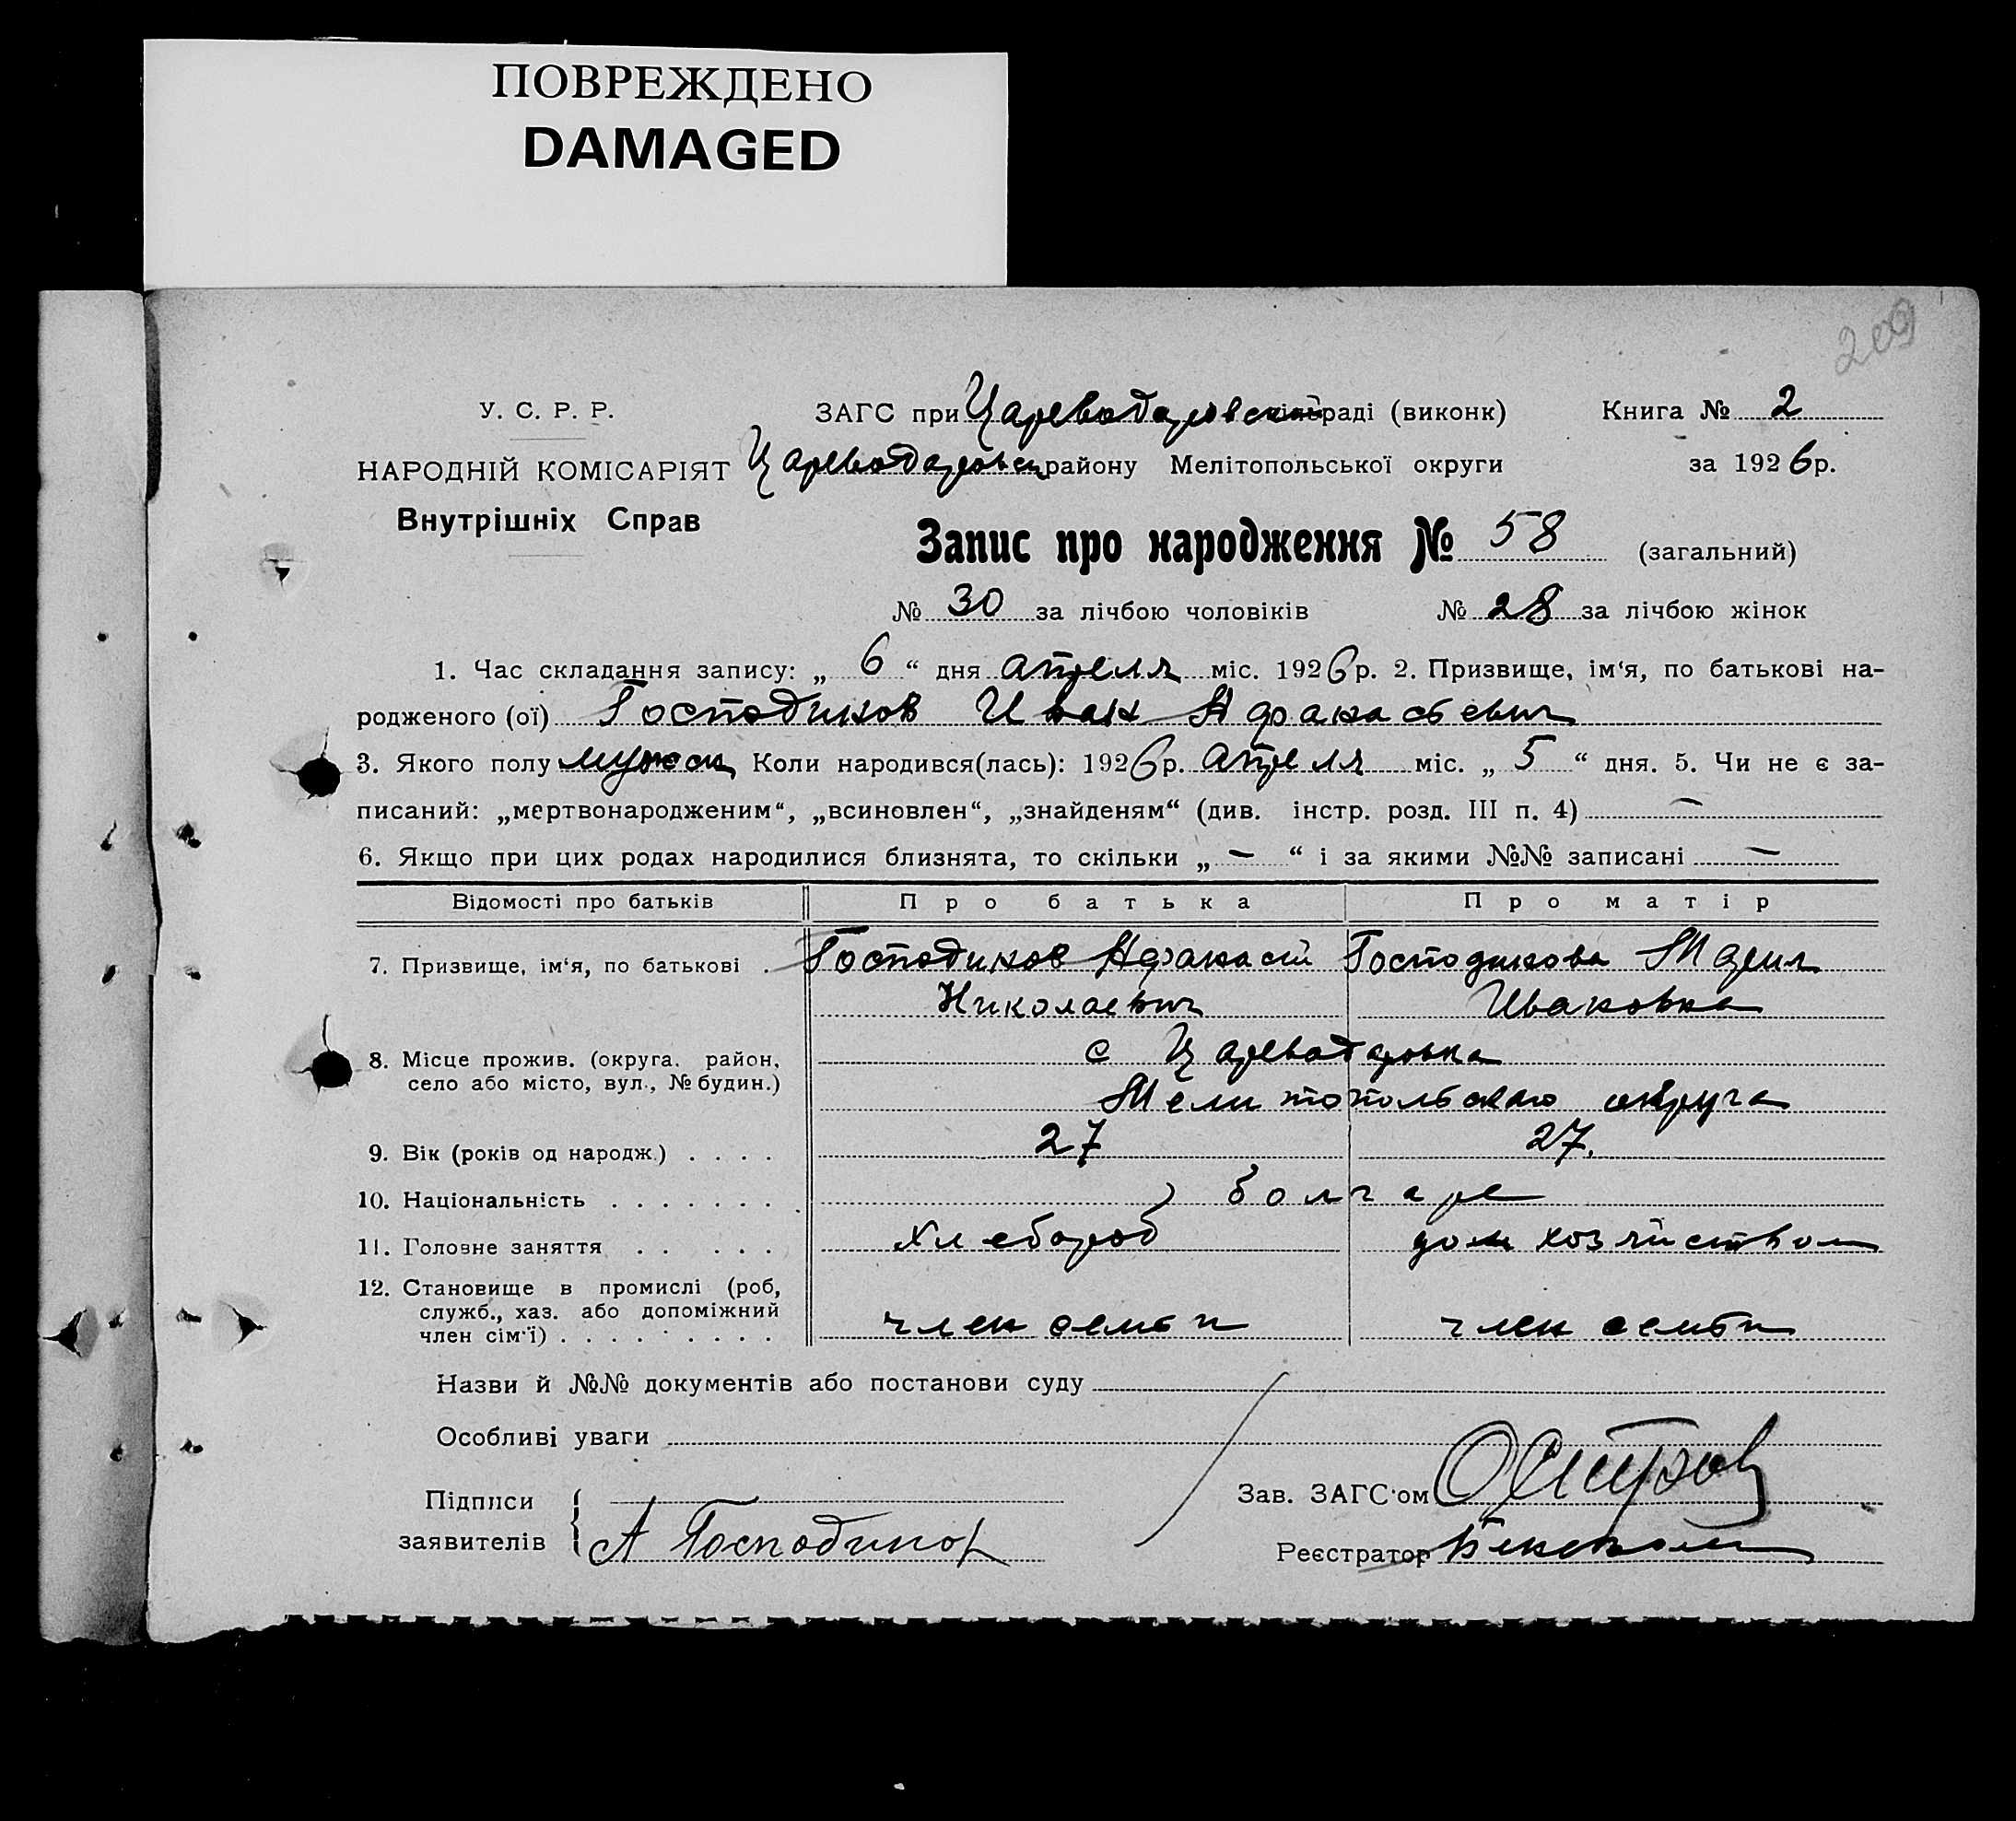 ПОВРЕЖДЕНО
DAMAGED
209
У. С. Р. Р.
ЗАГС при Цареводаровской раді (виконк)
Книга № 2
НАРОДНІЙ КОМІСАРІЯТ
Цареводаровск району Мелітопольської округи
за 1926 р.
Внутрішніх Справ
Запис про народження № 58 (загальний)
№ 30 за лічбою чоловіків № 28 за лічбою жінок
1. Час складання запису: „ 6 “ дня апреля міс. 1926 р. 2. Призвище, ім‘я, по батькові на-
родженого (ої) Господинов Иван Афанасьевич
3. Якого полу мужск Коли народився(лась): 1926 р. апреля міс. „ 5 “ дня. 5. Чи не є за-
писаний: „мертвонародженим“, „всиновлен“, „знайденям“ (див. інстр. розд. III п. 4) —
6. Якщо при цих родах народилися близнята, то скільки „ — “ і за якими №№ записані —
Відомості про батьків Про батька Про матір
7. Призвище, ім‘я, по батькові . Господинов Афанасий Господинова Мария
Николаевич Ивановна
8. Місце прожив. (округа. район, с Царевадаровка
село або місто, вул., № будин.)
Мелитопольского округа
9. Вік (років од народж.) . . . . 27 27.
10. Національність . . . . . . . болгаре
11. Головне заняття . . . . . . хлебороб дом хозяйством
12. Становище в промислі (роб,
служб., хаз. або допоміжний
член сім‘ї) . . . . . . . . . член семьи член семьи
Назви й №№ документів або постанови суду
Особливі уваги
Підписи
Зав. ЗАГС‘ом
заявителів { А Господинов
Реєстратор